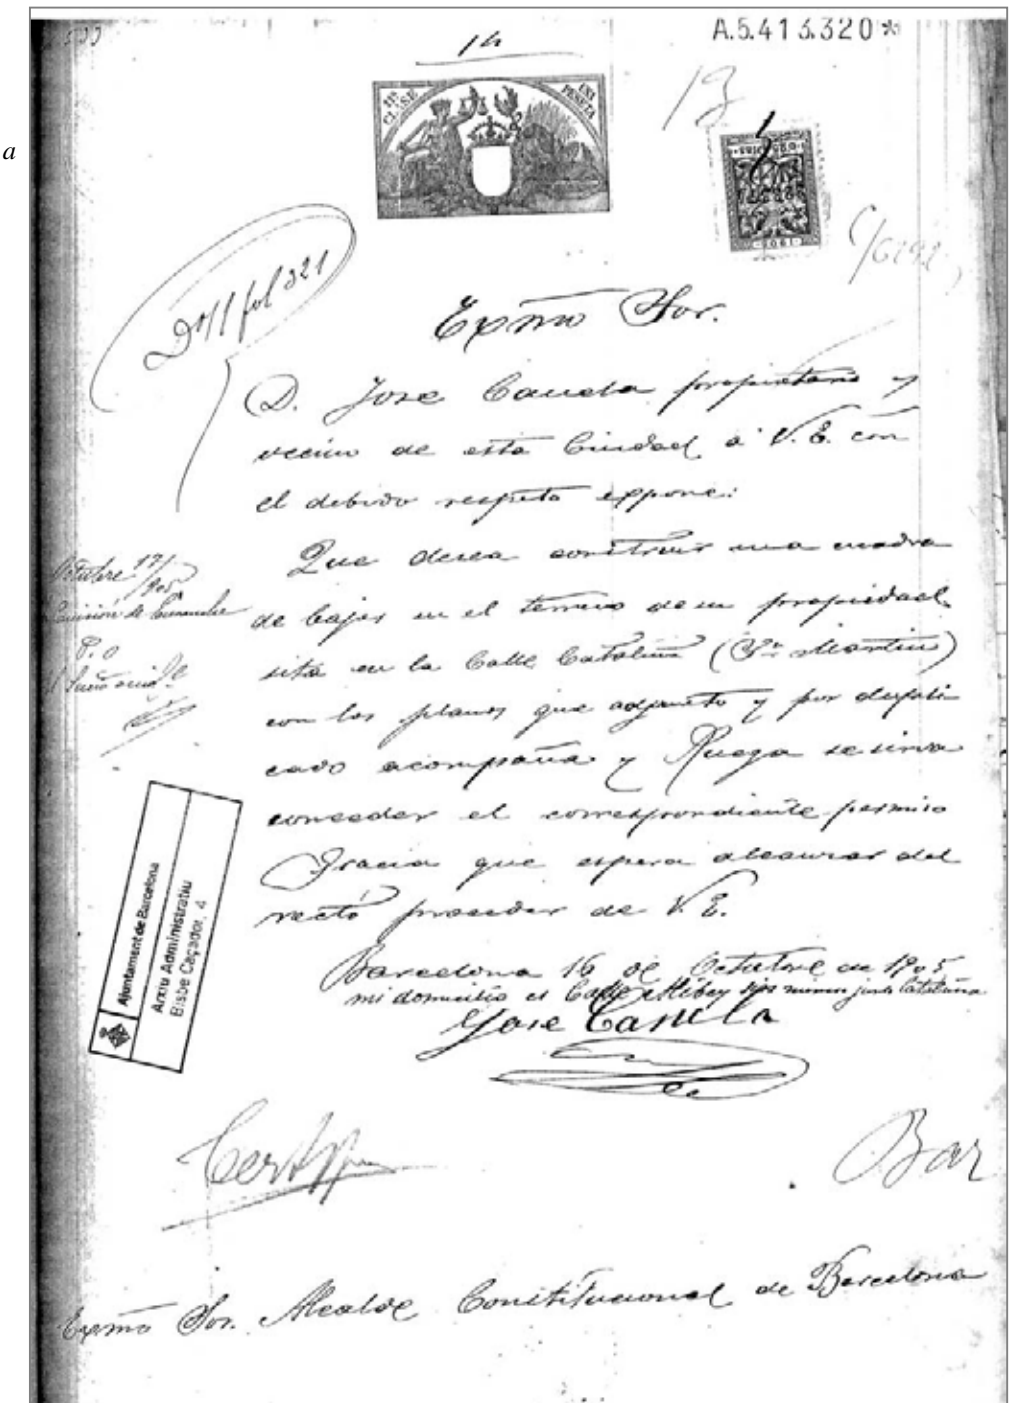 a
14
A.5.413.320*
13
11ª CLASE
UNA PESETA
1901
fol 321
Expmo Sor.
D. Jose Canela propietario y
vecino de esta Ciudad a V. E. con
el debido respeto expone:
Que desea construir una cuadra
de bajos en el terreno de su propiedad
sita en la Calle Cataluña (Sn Martin)
con los planos que adjunto y por dupli
cado acompaña y Ruega se sirva
conceder el correspondiente permiso
Gracia que espera alcanzar del
recto proceder de V. E.
Barcelona 16 de Octubre de 1905
mi domicilio es Calle junto Cataluña
Jose Canela
Octubre 17/905
Comisión de Ensanche
P. O
Ajuntament de Barcelona
Arxiu Administratiu
Bisbe Caçador, 4
Bar
Expmo Sor. Alcalde Constitucional de Barcelona